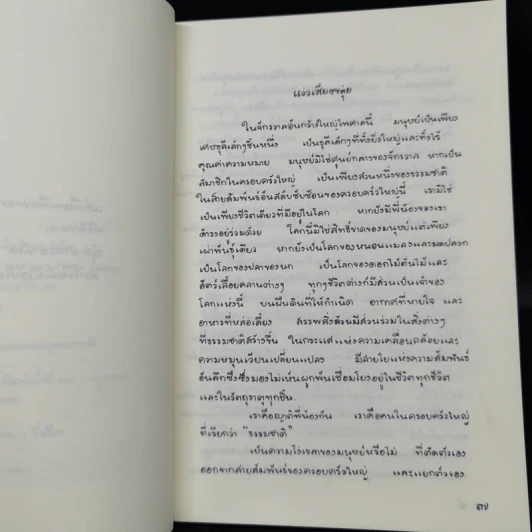 แว่วเสียงขลุ่ย
ในจักรวาลอันกว้างใหญ่ไพศาลนี้ มนุษย์เป็นเพียง
เศษธุลีเล็กๆชิ้นหนึ่ง เป็นธุลีเล็กๆที่ทั้งยิ่งใหญ่และทั้งไร้
คุณค่าความหมาย มนุษย์มิใช่ศูนย์กลางของจักรวาล หากเป็น
สมาชิกในครอบครัวใหญ่ เป็นเพียงส่วนหนึ่งของธรรมชาติ
ในสายสัมพันธ์อันสลับซับซ้อนของครอบครัวใหญ่นี้ เรามิใช่
เป็นเพียงชีวิตเดียวที่มีอยู่ในโลก หากยังมีพี่น้องของเรา
ดำรงอยู่ร่วมด้วย โลกนี้มิใช่สิทธิ์ขาดของมนุษย์แต่เพียง
เผ่าพันธุ์เดียว หากยังเป็นโลกของหนอนแมลงและมดปลวก
เป็นโลกของปลาของนก เป็นโลกของดอกไม้ต้นไม้และ
สัตว์เลื้อยคลานต่างๆ ทุกๆชีวิตต่างก็มีส่วนเป็นเจ้าของ
โลกแห่งนี้ บนผืนดินที่ให้กำเนิด อากาศที่หายใจ และ
อาหารที่หล่อเลี้ยง สรรพสิ่งล้วนมีส่วนร่วมในสิ่งต่างๆ
ที่ธรรมชาติสร้างขึ้น ในกระแสแห่งความเคลื่อนคล้อยและ
ความหมุนเวียนเปลี่ยนแปลง มีสายใยแห่งความสัมพันธ์
อันลึกซึ้งซึ่งมองไม่เห็นผูกพันเชื่อมโยงอยู่ในชีวิตทุกชีวิต
และในวัตถุธาตุทุกชิ้น.
เราคือญาติพี่น้องกัน เราคือคนในครอบครัวใหญ่
ที่เรียกว่า "ธรรมชาติ"
เป็นความไร้เขลาของมนุษย์หรือไม่ ที่ตัดตัวเอง
ออกจากสายสัมพันธ์ของครอบครัวใหญ่ และแยกตัวเอง
๓๗